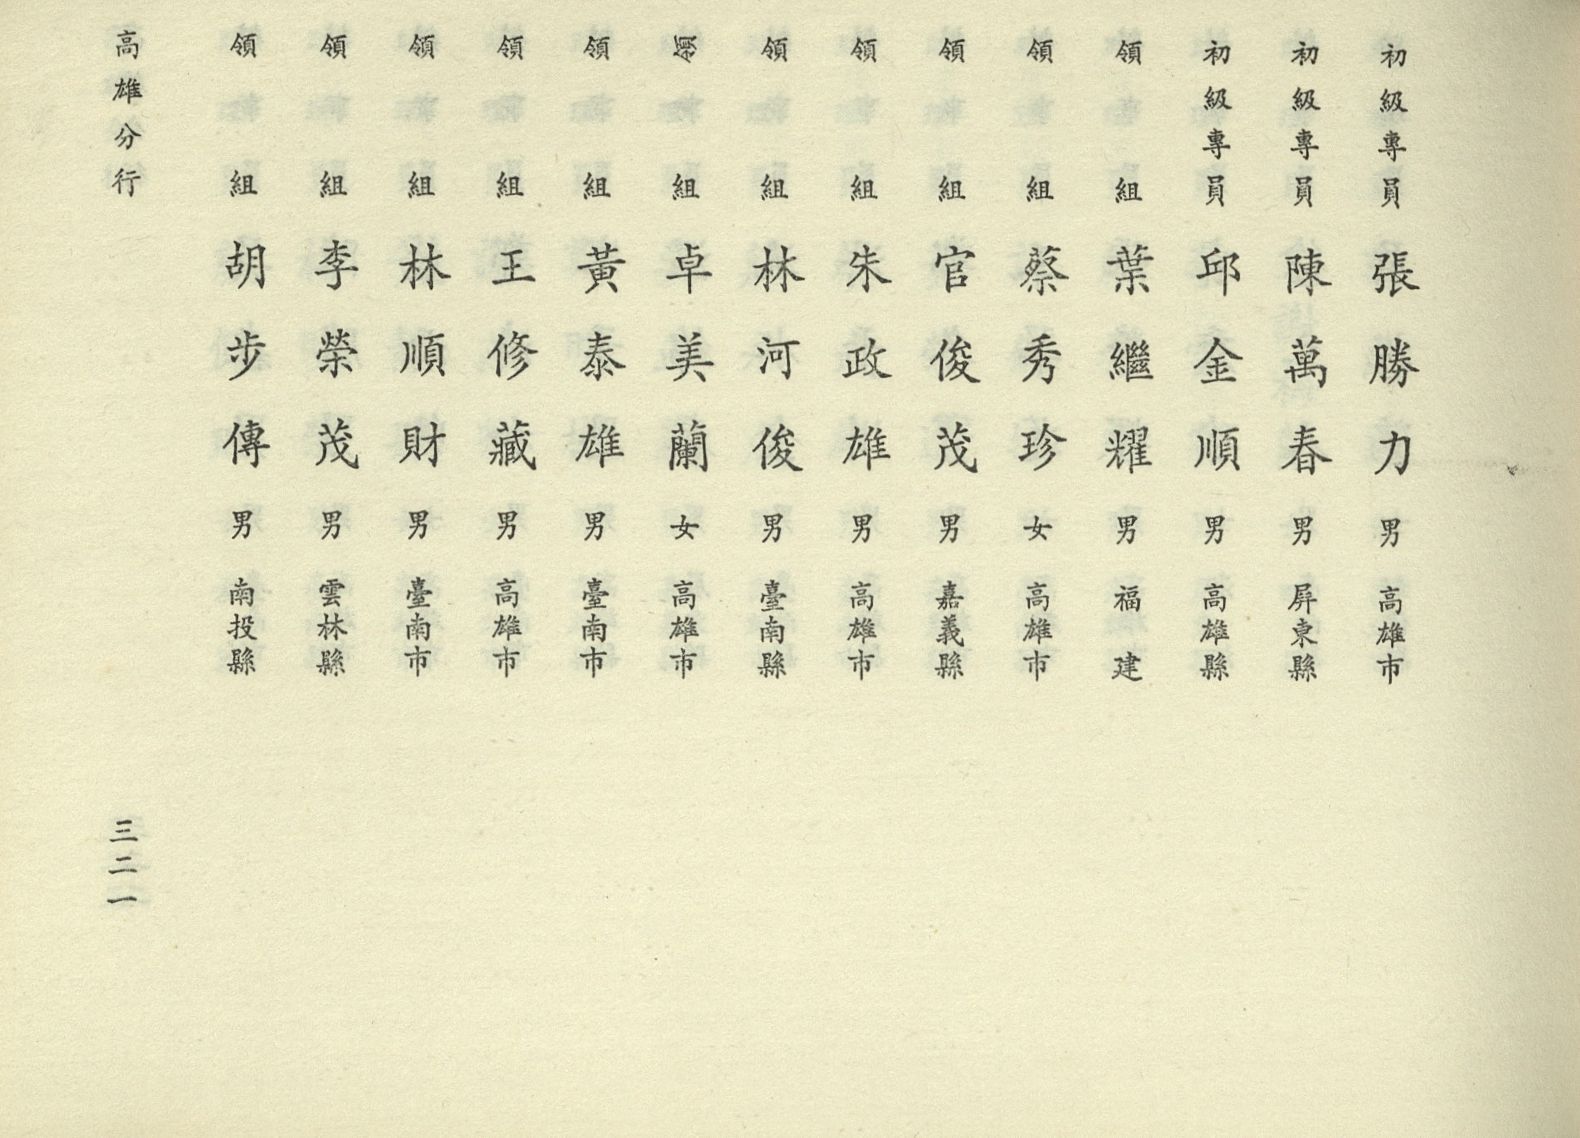 初級專員 張勝力 男 高雄市
初級專員 陳萬春 男 屏東縣
初級專員 邱金順 男 高雄縣
領組 葉繼耀 男 福建
領組 蔡秀珍 女 高雄市
領組 官俊茂 男 嘉義縣
領組 朱政雄 男 高雄市
領組 林河俊 男 臺南縣
領組 卓美蘭 女 高雄市
領組 黃泰雄 男 臺南市
領組 王修藏 男 高雄市
領組 林順財 男 臺南市
領組 李榮茂 男 雲林縣
領組 胡步傳 男 南投縣
高雄分行 三二一